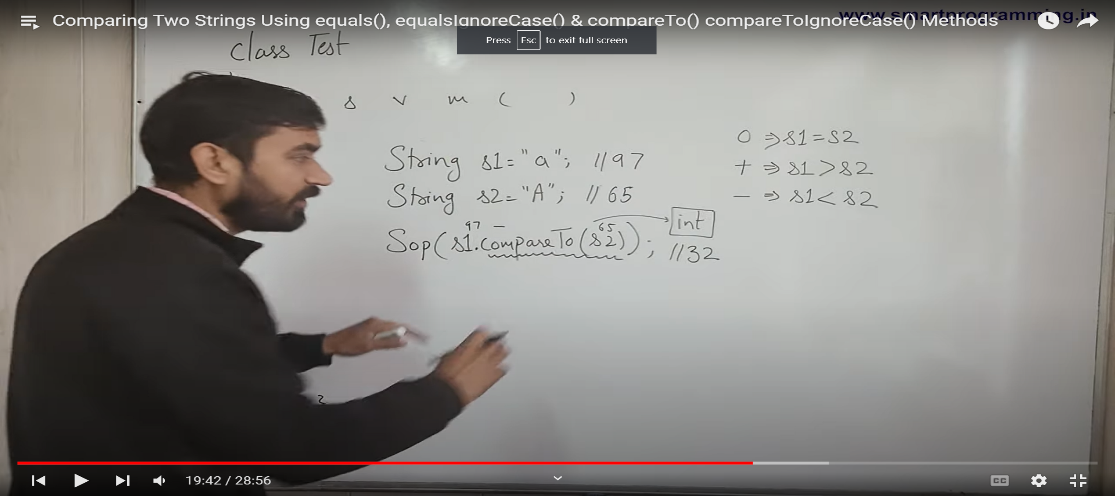 Comparing Two Strings Using equals(), equalsIgnoreCase() & compareTo() compareToIgnoreCase() Methods
www.smartprogramming.in
Press Esc to exit full screen
class Test
s v m ( )
String s1="a"; //97
String s2="A"; //65
97 – 65
Sop(s1.compareTo(s2)); //32
int
0 ⇒ s1=s2
+ ⇒ s1>s2
– ⇒ s1<s2
2
19:42 / 28:56
CC